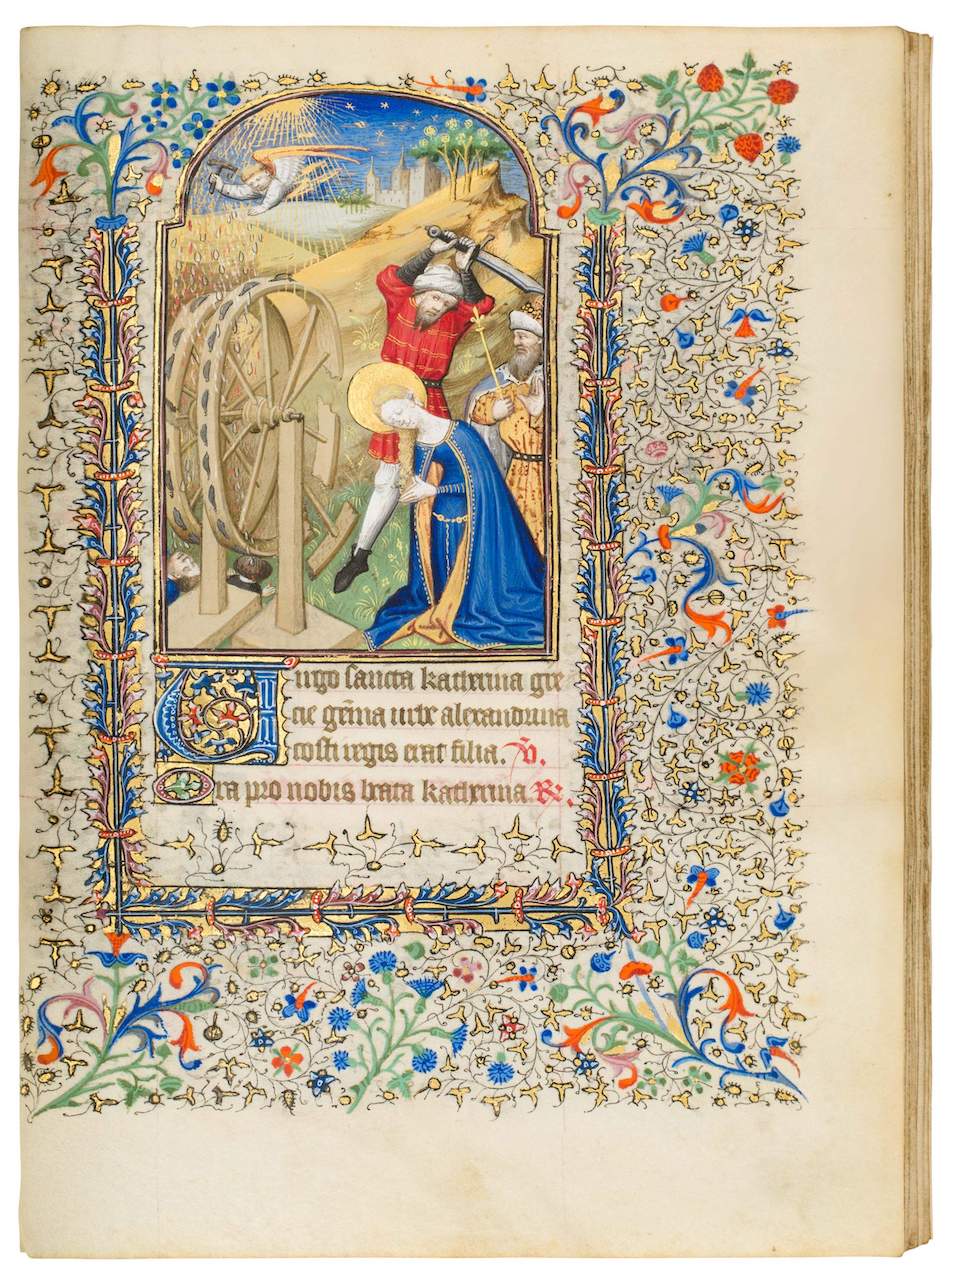 Uirgo sancta katherina gre
cie gēma urbe alexandrina
costi regis erat filia. V̄.
Ora pro nobis beata katherina. R̄.